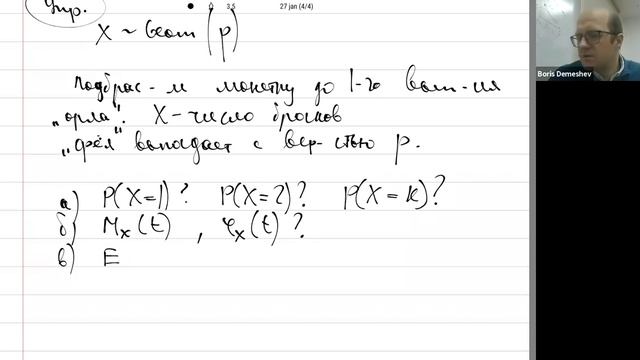 27 jan (4/4)
Упр.
X ~ Geom (p)
Подбрас-м монетку до 1-го вып-ия
„орла". X – число бросков
„Орёл" выпадает с вер-стью p.
а) P(X=1)? P(X=2)? P(X=k)?
б) M_X(t), φ_X(t)?
в) E
Boris Demeshev